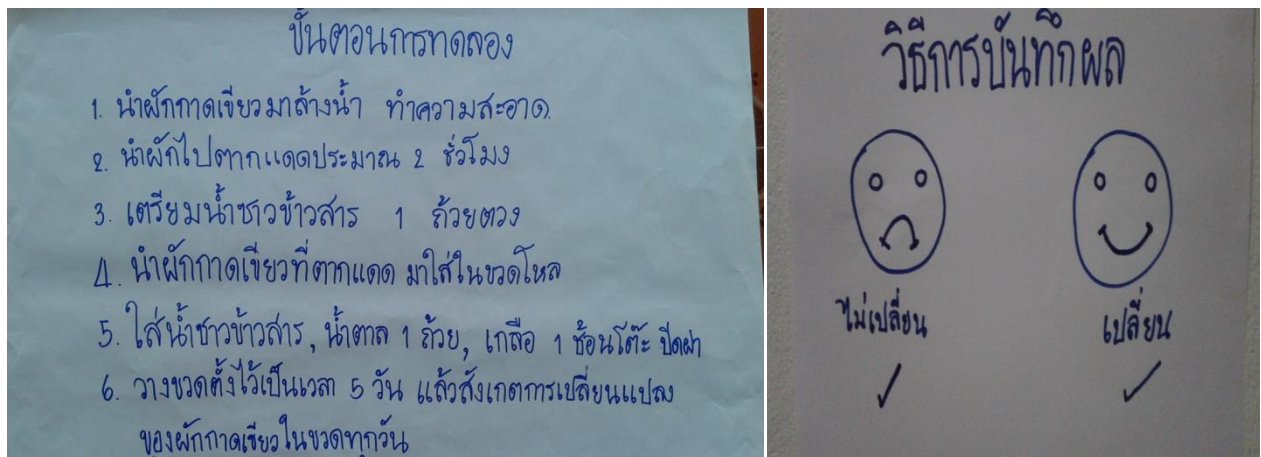 ขั้นตอนการทดลอง
1. นำผักกาดเขียวมาล้างน้ำ ทำความสะอาด.
2. นำผักไปตากแดดประมาณ 2 ชั่วโมง
3. เตรียมน้ำซาวข้าวสาร 1 ถ้วยตวง
4. นำผักกาดเขียวที่ตากแดด มาใส่ในขวดโหล
5. ใส่น้ำซาวข้าวสาร, น้ำตาล 1 ถ้วย, เกลือ 1 ช้อนโต๊ะ ปิดฝา
6. วางขวดตั้งไว้เป็นเวลา 5 วัน แล้วสังเกตการเปลี่ยนแปลง
ของผักกาดเขียวในขวดทุกวัน
วิธีการบันทึกผล
ไม่เปลี่ยน
เปลี่ยน